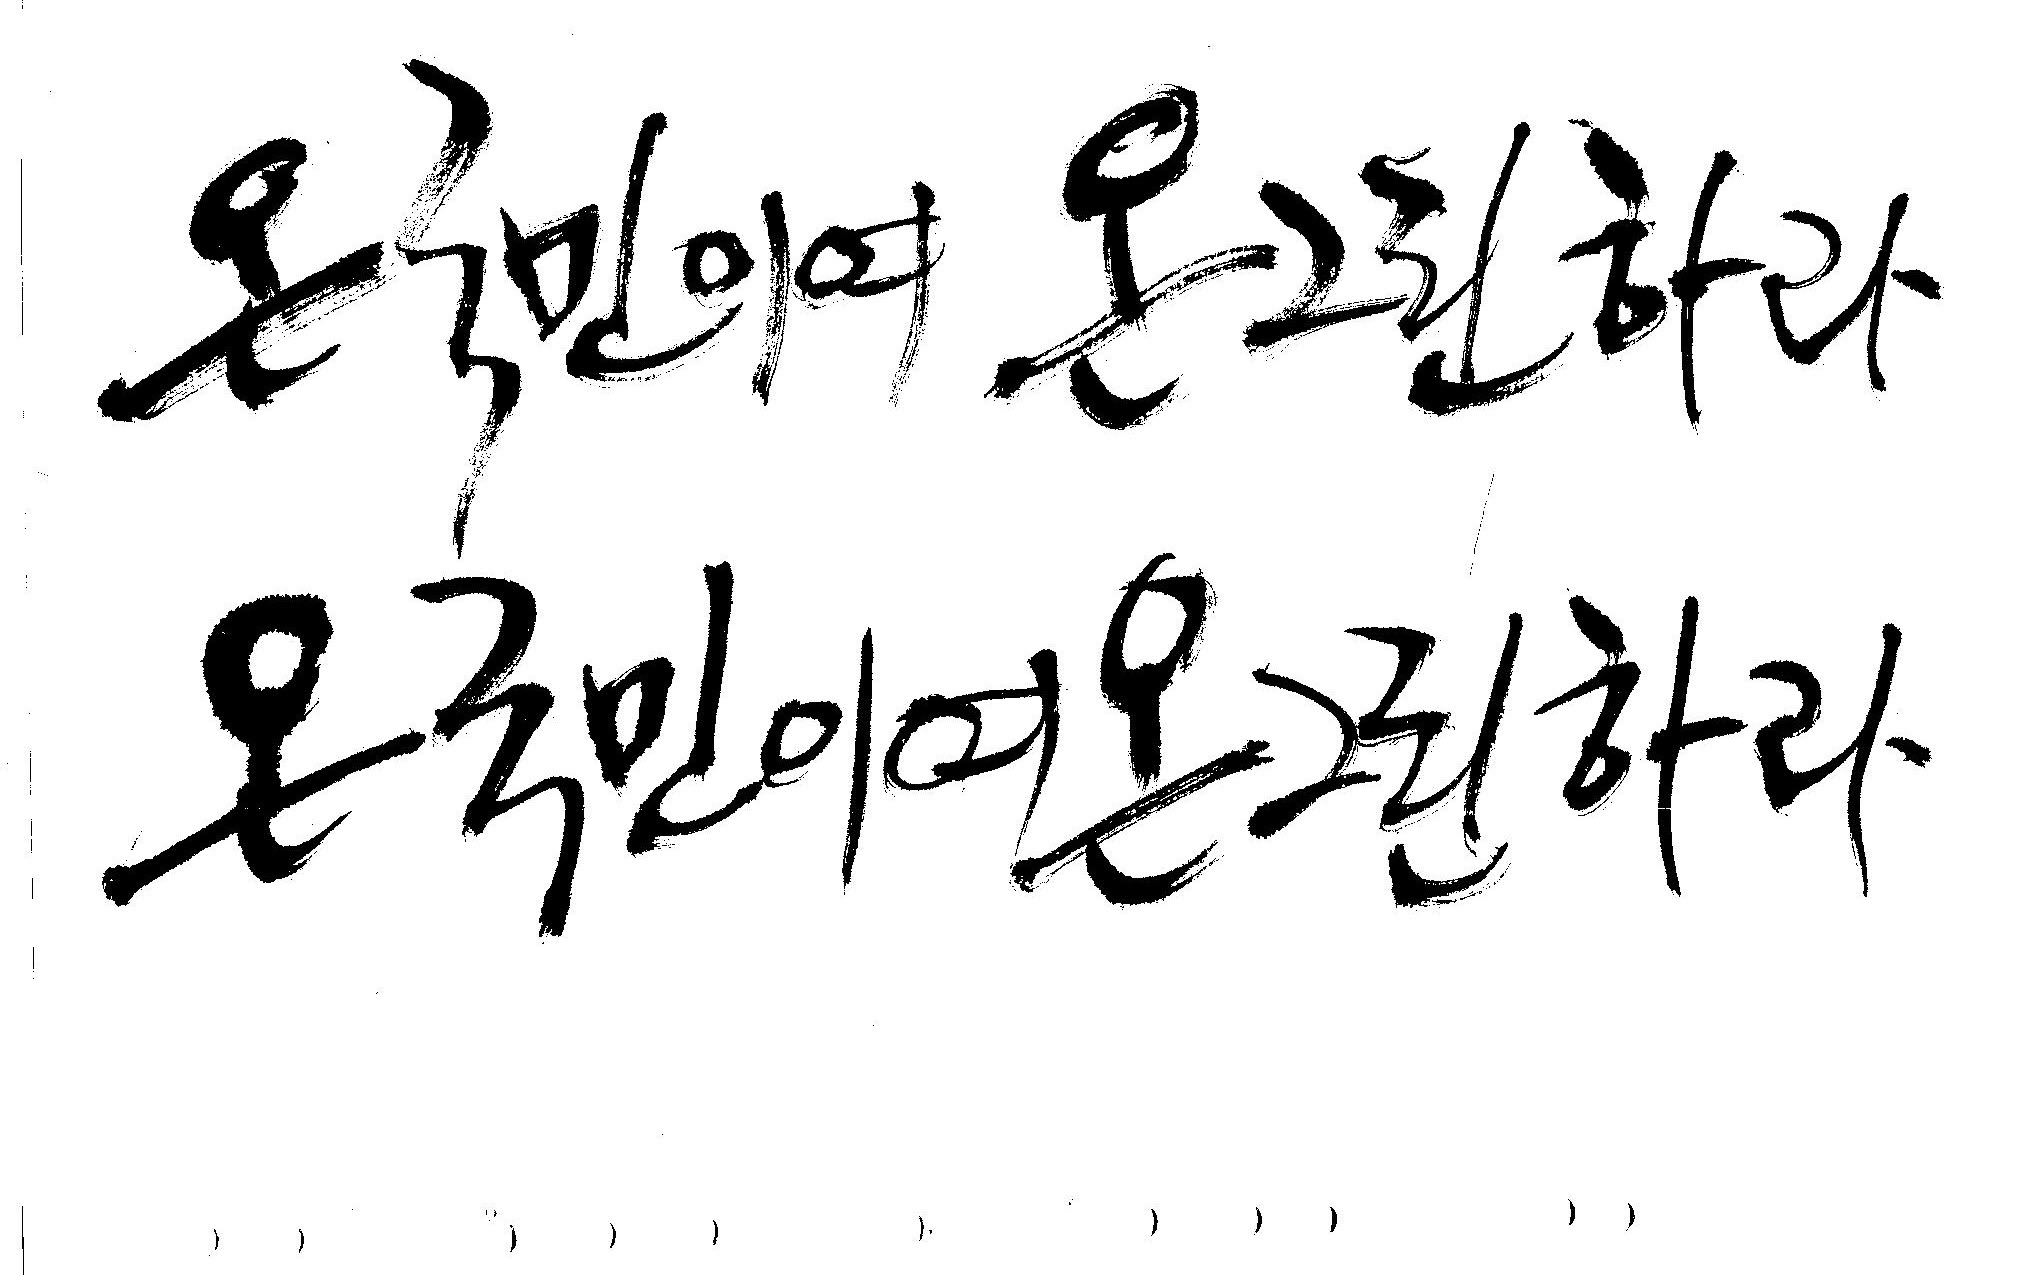 온국민이여 온그린하라
온국민이여 온그린하라